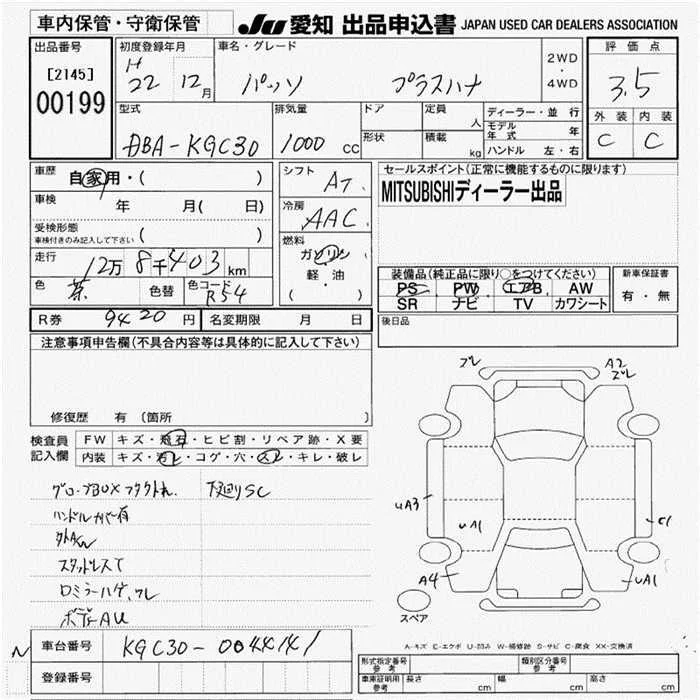 車内保管・守衛保管 JU 愛知 出品申込書 JAPAN USED CAR DEALERS ASSOCIATION
出品番号 初度登録年月 車名・グレード 2WD・4WD 評価点
[2145] H 22 12月 パッソ プラスハナ 3.5
00199
型式 排気量 ドア 定員 人 ディーラー・並行 外装 内装
DBA-KGC30 1000 cc 形状 積載 kg モデル年式 年 C C
ハンドル 左・右
車歴 自家用・( ) シフト AT セールスポイント(正常に機能するものに限ります)
車検 年 月( 日) 冷房 AAC MITSUBISHIディーラー出品
受検形態 車検付きのみ記入して下さい ( ) 燃料
走行 12万8千403km ガソリン
軽・油
( )
色 茶 色替 色コード R54
装備品(純正品に限り○をつけてください) 新車保証書
PS PW エアB AW 有・無
SR ナビ TV カワシート
R券 9420円 名変期限 月 日 後日品
注意事項申告欄(不具合内容等は具体的に記入して下さい)
修復歴 有(箇所
検査員記入欄 FW キズ・飛石・ヒビ割・リペア跡・X要
内装 キズ・汚レ・コゲ・穴・スレ・キレ・破レ
グローブBOX 下廻りSC
ハンドルカバー有
スタッドレスT
ロミラーハゲ、ワレ
ボディAU
N 車台番号 KGC30-0044141
登録番号
A2
uA3
uA1
C1
A4
uA1
スペア
A-キズ E-エクボ U-凹み W-補修跡 S-サビ C-腐食 XX-交換済
形式指定番号 参考 類別区分番号 参考
車庫証明用 参考 長さ cm 幅 cm 高さ cm